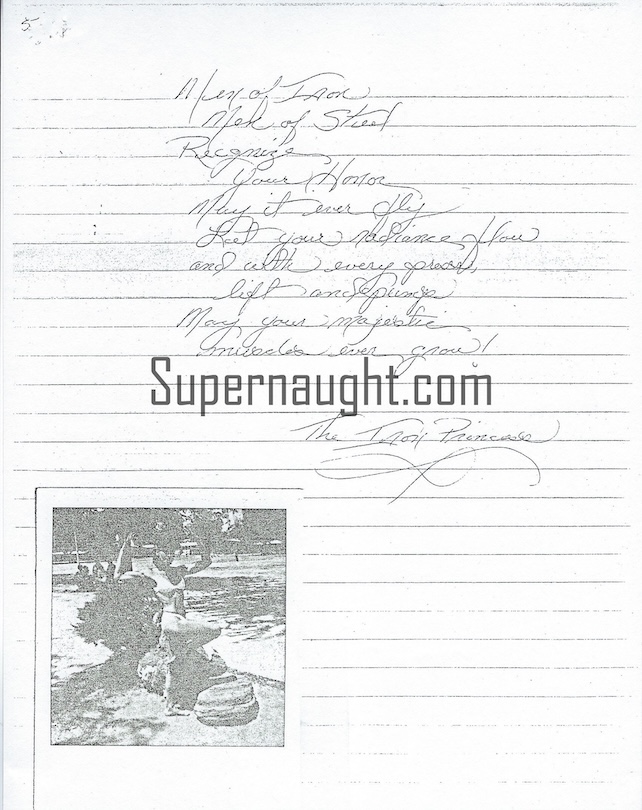 5
Men of Iron
Men of Steel
Recgnize
Your Honor
May it ever fly
Let your radiance flow
and with every press,
lift and pump
May your majestic
muscles ever grow!
Supernaught.com
The Iron Princess